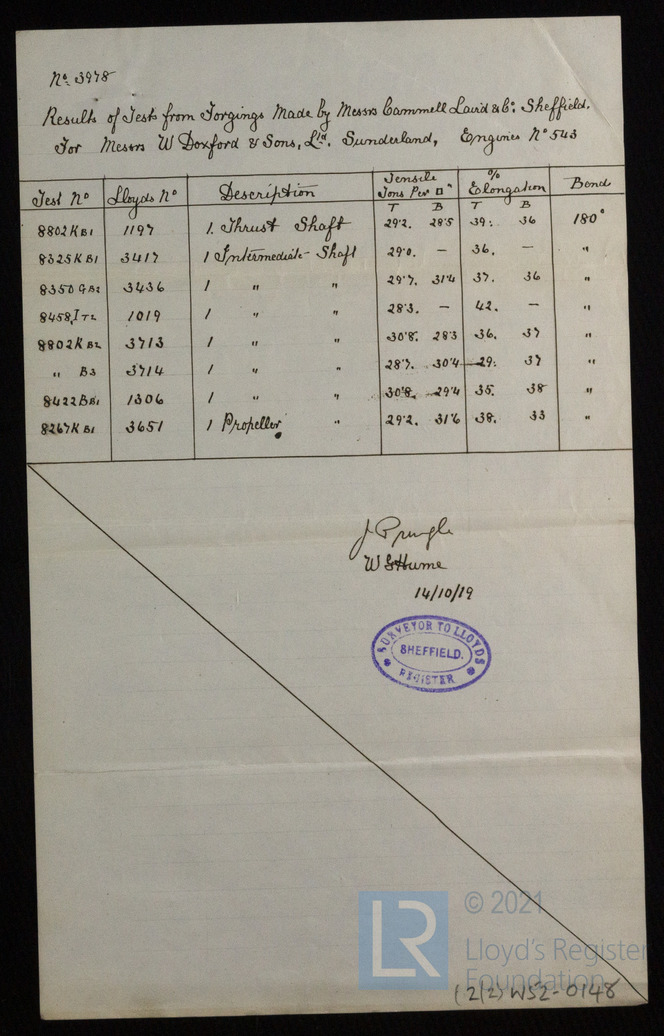 No. 3978
Results of Tests from Forgings Made by Messrs Cammell Laird & Co: Sheffield.
For Messrs W Doxford & Sons, Ltd. Sunderland, Engines No 543
Test No Lloyds No Description Tensile Tons Per □" % Elongation Bend
T B T B
8802K B1 1197 1. Thrust Shaft 29.2. 28.5 39. 36 180°
8325K B1 3417 1 Intermediate Shaft 29.0. — 36. — "
8350 G B2 3436 1 " " 29.7. 31.4 37. 36 "
8458, I T2 1019 1 " " 28.3. — 42. — "
8802K B2 3713 1 " " 30.8. 28.3 36. 37 "
" B3 3714 1 " " 28.7. 30.4 29. 37 "
8422B B1 1306 1 " " 30.8. 29.4 35. 38 "
8267K B1 3651 1 Propeller " 29.2. 31.6 38. 33 "
J Pringle
W S Hume
14/10/19
SURVEYOR TO LLOYDS
SHEFFIELD.
REGISTER
LR
© 2021
Lloyd's Register
Foundation
(2(2) W52-0148